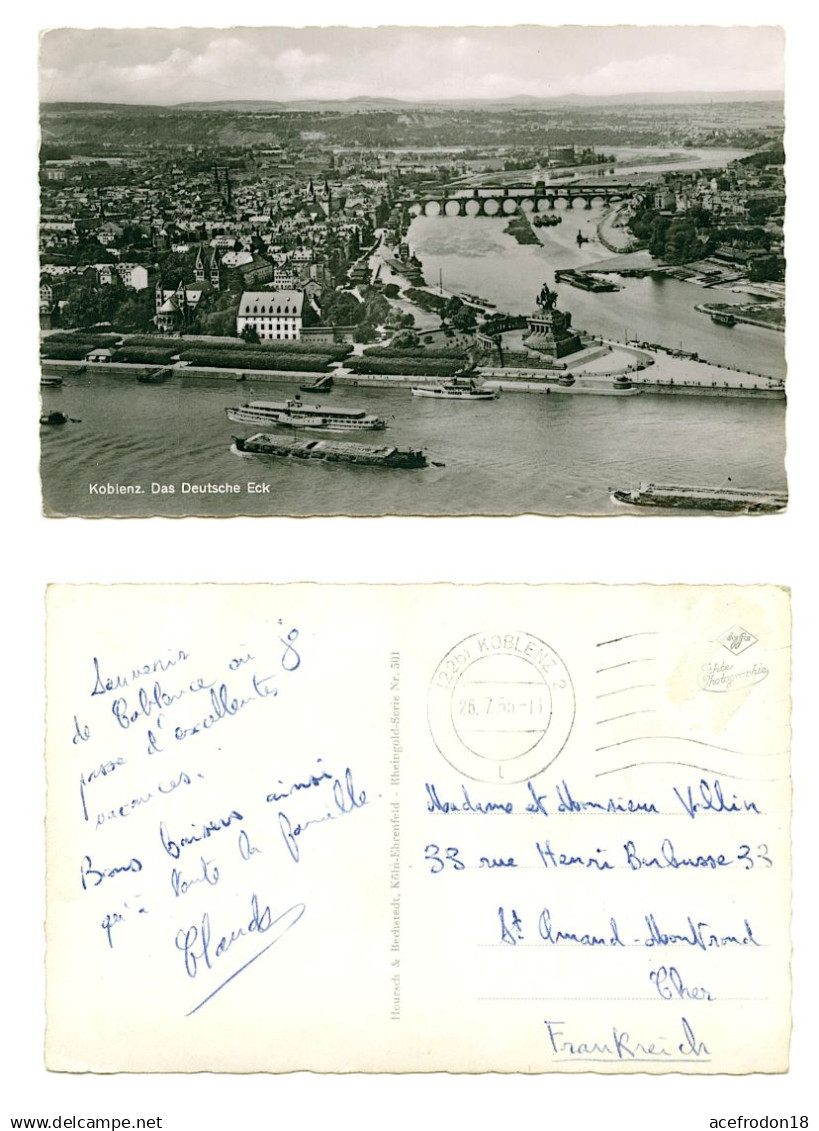 Koblenz. Das Deutsche Eck
Souvenir
de Coblence où je
passe d'excellentes
vacances.
Bons baisers ainsi
qu'à toute la famille.
Claude
Hoursch & Bechstedt, Köln-Ehrenfeld - Rheingold-Serie Nr. 501
(22b) KOBLENZ 2
26.7.55-13
Agfa
Echte
Photographie
Madame et Monsieur Vallin
33 rue Henri Barbusse 33
St Amand-Montrond
Cher
Frankreich
acefrodon18